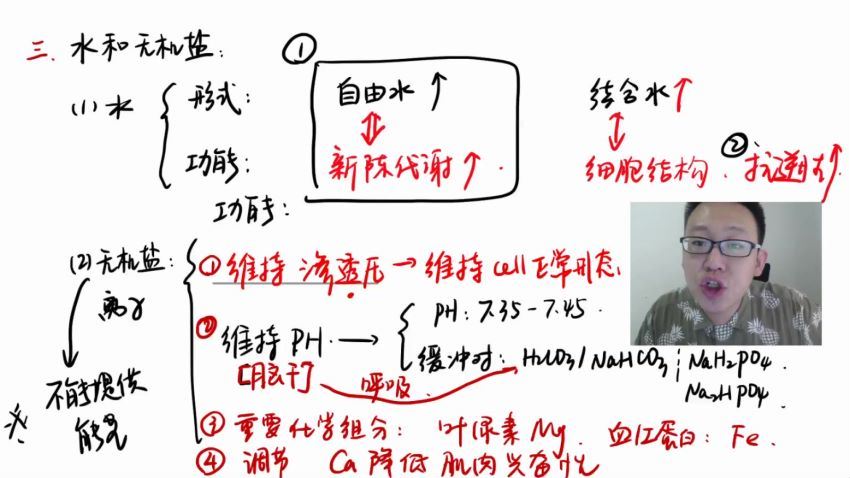 三、水和无机盐:
①
(1)水
形式:
自由水↑
结合水↑
功能:
新陈代谢↑.
细胞结构、
②
抗逆性↑.
功能:
(2)无机盐:
①维持渗透压→维持cell正常形态.
离子
②维持PH.→
PH:7.35-7.45.
缓冲对:H2CO3/NaHCO3;NaH2PO4.
Na2HPO4.
[胰干]
呼吸.
不能提供
能量
③重要化学组分:叶绿素Mg.血红蛋白:Fe.
④调节 Ca降低肌肉兴奋性